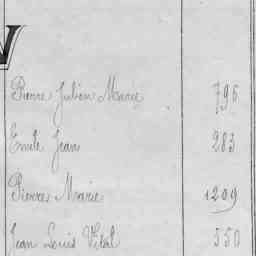 N
Pierre Julien Marie 796
Emile Jean 283
Pierre Marie 1209
Jean Louis Vital 550